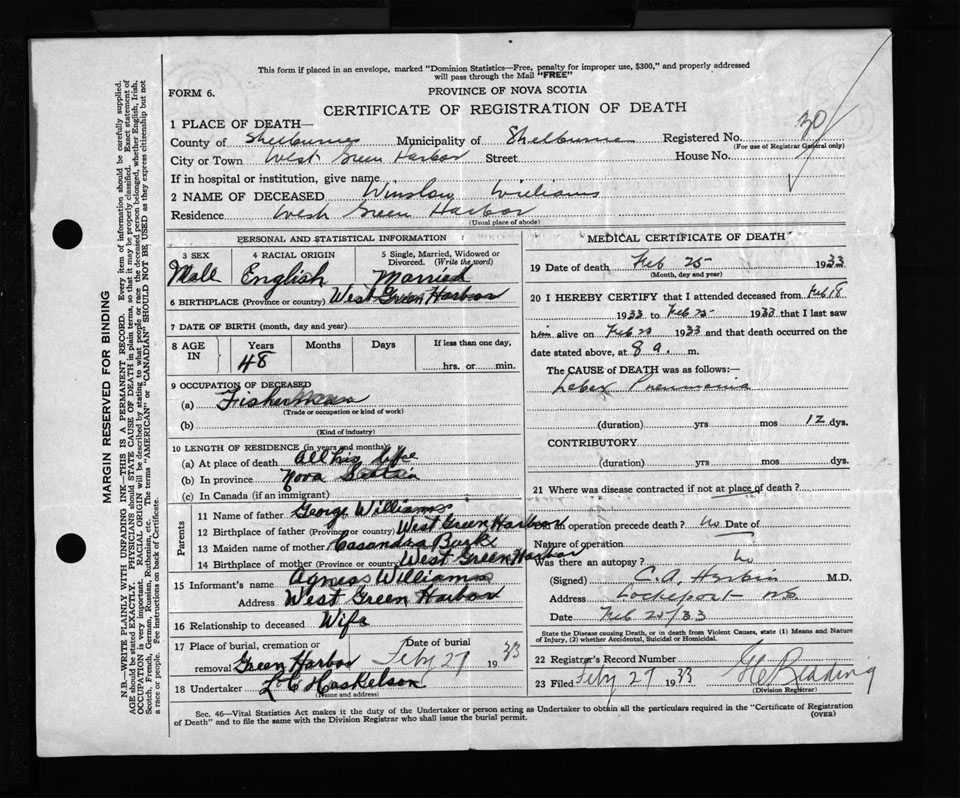 This form if placed in an envelope, marked "Dominion Statistics—Free, penalty for improper use, $300," and properly addressed
will pass through the Mail "FREE"
FORM 6.
PROVINCE OF NOVA SCOTIA
CERTIFICATE OF REGISTRATION OF DEATH
1 PLACE OF DEATH—
County of Shelburne Municipality of Shelburne Registered No. 30
(For use of Registrar General only)
City or Town West Green Harbor Street House No.
If in hospital or institution, give name
2 NAME OF DECEASED Winslow Williams
Residence West Green Harbor
(Usual place of abode)
PERSONAL AND STATISTICAL INFORMATION
3 SEX 4 RACIAL ORIGIN 5 Single, Married, Widowed or Divorced. (Write the word)
Male English Married
6 BIRTHPLACE (Province or country) West Green Harbor
7 DATE OF BIRTH (month, day and year)
8 AGE IN Years Months Days If less than one day,
48 hrs. or min.
9 OCCUPATION OF DECEASED
(a) Fisherman
(Trade or occupation or kind of work)
(b)
(Kind of industry)
10 LENGTH OF RESIDENCE (in years and months)
(a) At place of death All his life
(b) In province Nova Scotia
(c) In Canada (if an immigrant)
Parents
11 Name of father George Williams
12 Birthplace of father (Province or country) West Green Harbor
13 Maiden name of mother Casandra Burke
14 Birthplace of mother (Province or country) West Green Harbor
15 Informant's name Agness Williams
Address West Green Harbor
16 Relationship to deceased Wife
17 Place of burial, cremation or Date of burial
removal Green Harbor Feby 27 1933
18 Undertaker L C Haskelson
(Name and address)
MEDICAL CERTIFICATE OF DEATH
19 Date of death Feb 25 1933
(Month, day and year)
20 I HEREBY CERTIFY that I attended deceased from Feb 18
1933 to Feb 25 1933 that I last saw
him alive on Feb 23 1933 and that death occurred on the
date stated above, at 8 a. m.
The CAUSE of DEATH was as follows:—
Lobar Pneumonia
(duration) yrs mos 12 dys.
CONTRIBUTORY
(duration) yrs mos dys.
21 Where was disease contracted if not at place of death?
Did an operation precede death? no Date of
Nature of operation
Was there an autopsy? no
(Signed) C.A. Herbin M.D.
Address Lockeport NS
Date Feb 25/33
State the Disease causing Death, or in death from Violent Causes, state (1) Means and Nature of Injury, (2) whether Accidental, Suicidal or Homicidal.
22 Registrar's Record Number
23 Filed Feby 27 1933 Reading
(Division Registrar)
Sec. 46—Vital Statistics Act makes it the duty of the Undertaker or person acting as Undertaker to obtain all the particulars required in the "Certificate of Registration
of Death" and to file the same with the Division Registrar who shall issue the burial permit.
(OVER)
MARGIN RESERVED FOR BINDING
N.B.—WRITE PLAINLY WITH UNFADING INK—THIS IS A PERMANENT RECORD. Every item of information should be carefully supplied.
AGE should be stated EXACTLY. PHYSICIANS should STATE CAUSE OF DEATH in plain terms, so that it may be properly classified. Exact statement of
OCCUPATION is very important. RACIAL ORIGIN will be described by stating to what people or race the deceased person belonged, whether English, Irish,
Scotch, French, German, Russian, Ruthenian, etc. The terms "AMERICAN" or "CANADIAN" SHOULD NOT BE USED as they express citizenship but not
a race or people. See instructions on back of Certificate.